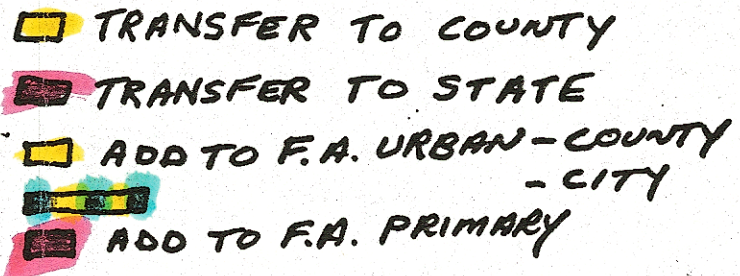 TRANSFER TO COUNTY
TRANSFER TO STATE
ADD TO F.A. URBAN - COUNTY
- CITY
ADD TO F.A. PRIMARY